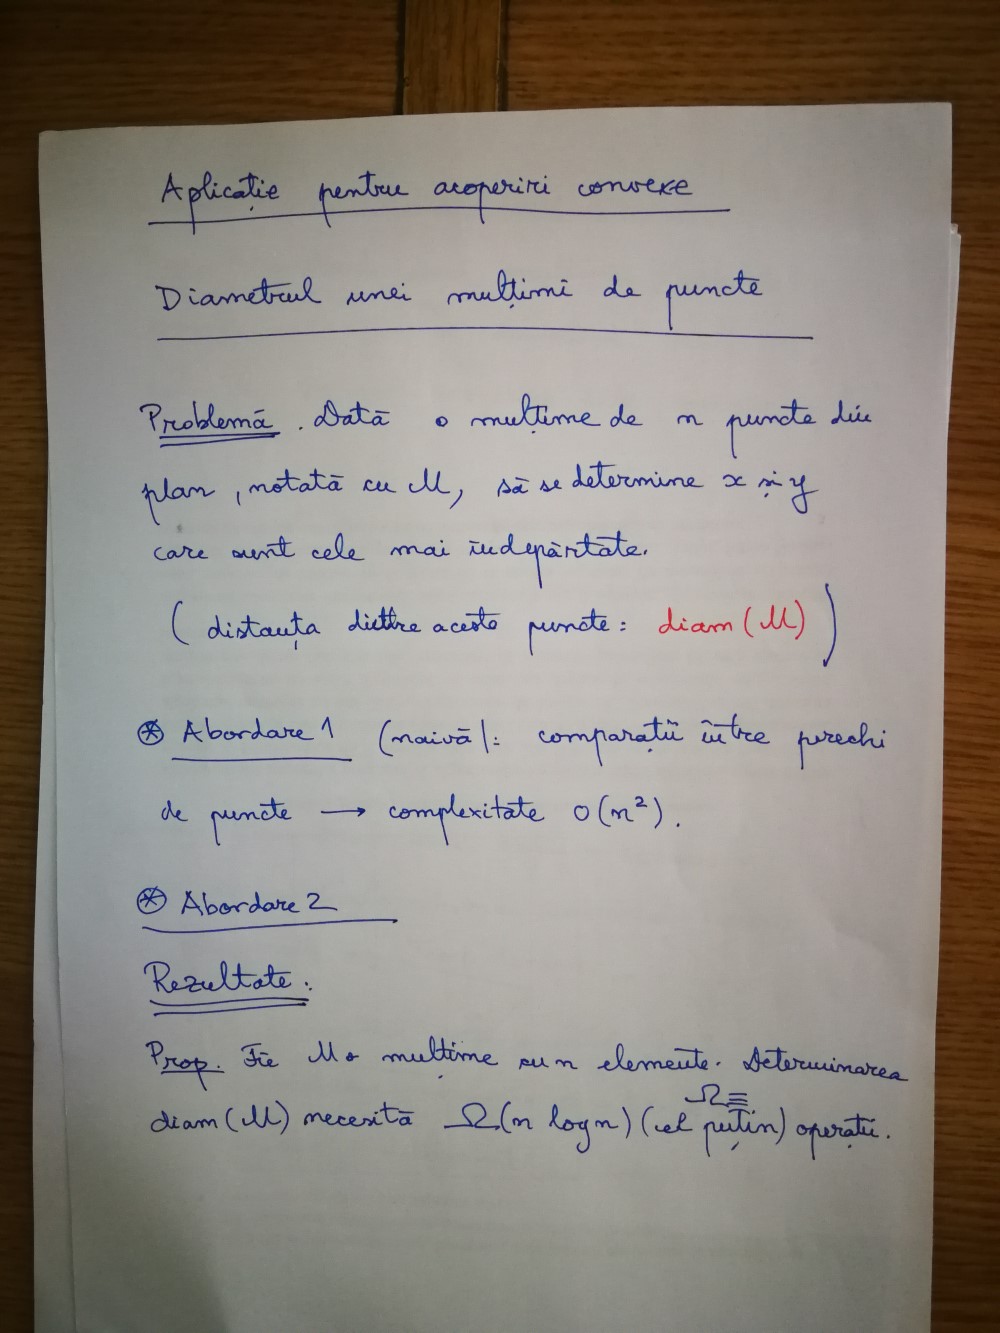 Aplicație pentru acoperiri convexe
Diametrul unei mulțimi de puncte
Problemă. Dată o mulțime de n puncte din
plan, notată cu M, să se determine x și y
care sunt cele mai îndepărtate.
(distanța dintre aceste puncte: diam(M))
⊛ Abordare 1 (naivă): comparații între perechi
de puncte → complexitate O(n²).
⊛ Abordare 2
Rezultate:
Prop. Fie M o mulțime cu n elemente. Determinarea
Ω≡
diam(M) necesită Ω(n log n) (cel puțin) operații.